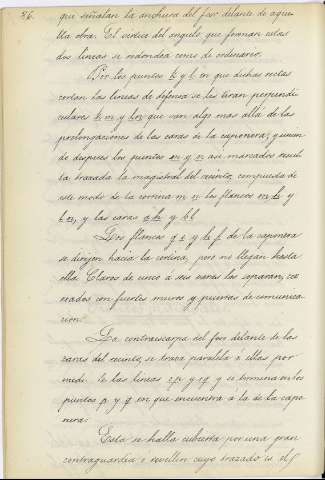 56.
que señalan la anchura del foso delante de aque-
lla obra. El vertice del angulo que forman estas
dos lineas se redondea como de ordinario.
Por los puntos k y l en que dichas rectas
cortan las lineas de defensa se les tiran perpendi-
culares k m y l n que van algo mas allá de las
prolongaciones de las caras de la caponera, y unien-
do despues los puntos m y n asi marcados result
ta trazada la magistral del recinto, compuesta de
este modo de la cortina m n los flancos m k y
l n, y las caras a k y b l.
Los flancos g e y h f de la caponera
se dirijen hacia la cortina, pero no llegan hasta
ella. Claros de cinco a seis varas los separan, cer
rados con fuertes muros y puertas de comunica
cion.
La contraescarpa del foso delante de las
caras del recinto, se traza paralela á ellas por
medio de las lineas y se termina en los
puntos p y q en que encuentra á la de la capo
nera.
Esta se halla cubierta por una gran
contraguardia o revellin cuyo trazado es el